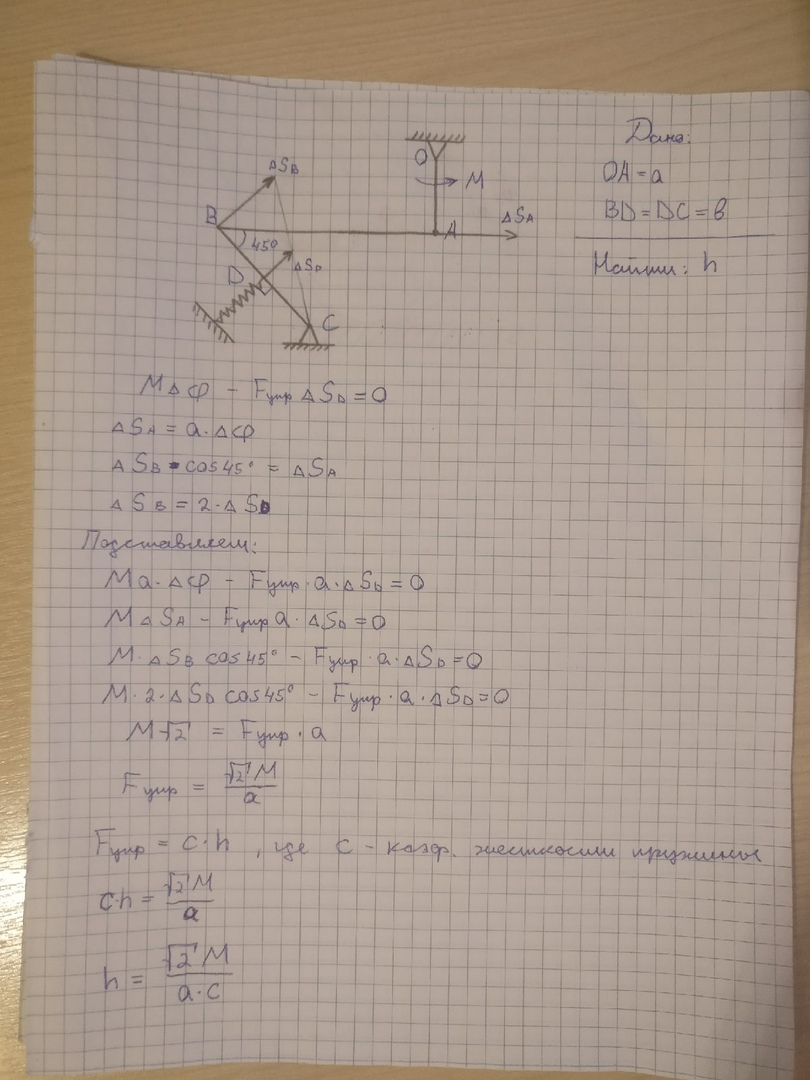 Дано:
OA = a
BD = DC = в
Найти: h
ΔS_B
O
M
B
A
ΔS_A
45°
ΔS_D
D
C
MΔφ - Fупр ΔS_D = 0
ΔS_A = a·Δφ
ΔS_B · cos45° = ΔS_A
ΔS_B = 2·ΔS_D
Подставляем:
Ma·Δφ - Fупр·a·ΔS_D = 0
MΔS_A - Fупр a·ΔS_D = 0
M·ΔS_B cos45° - Fупр·a·ΔS_D = 0
M·2·ΔS_D cos45° - Fупр·a·ΔS_D = 0
M√2 = Fупр·a
Fупр = √2 M / a
Fупр = c·h, где c - коэф. жесткости пружины
c·h = √2 M / a
h = √2 M / a·c